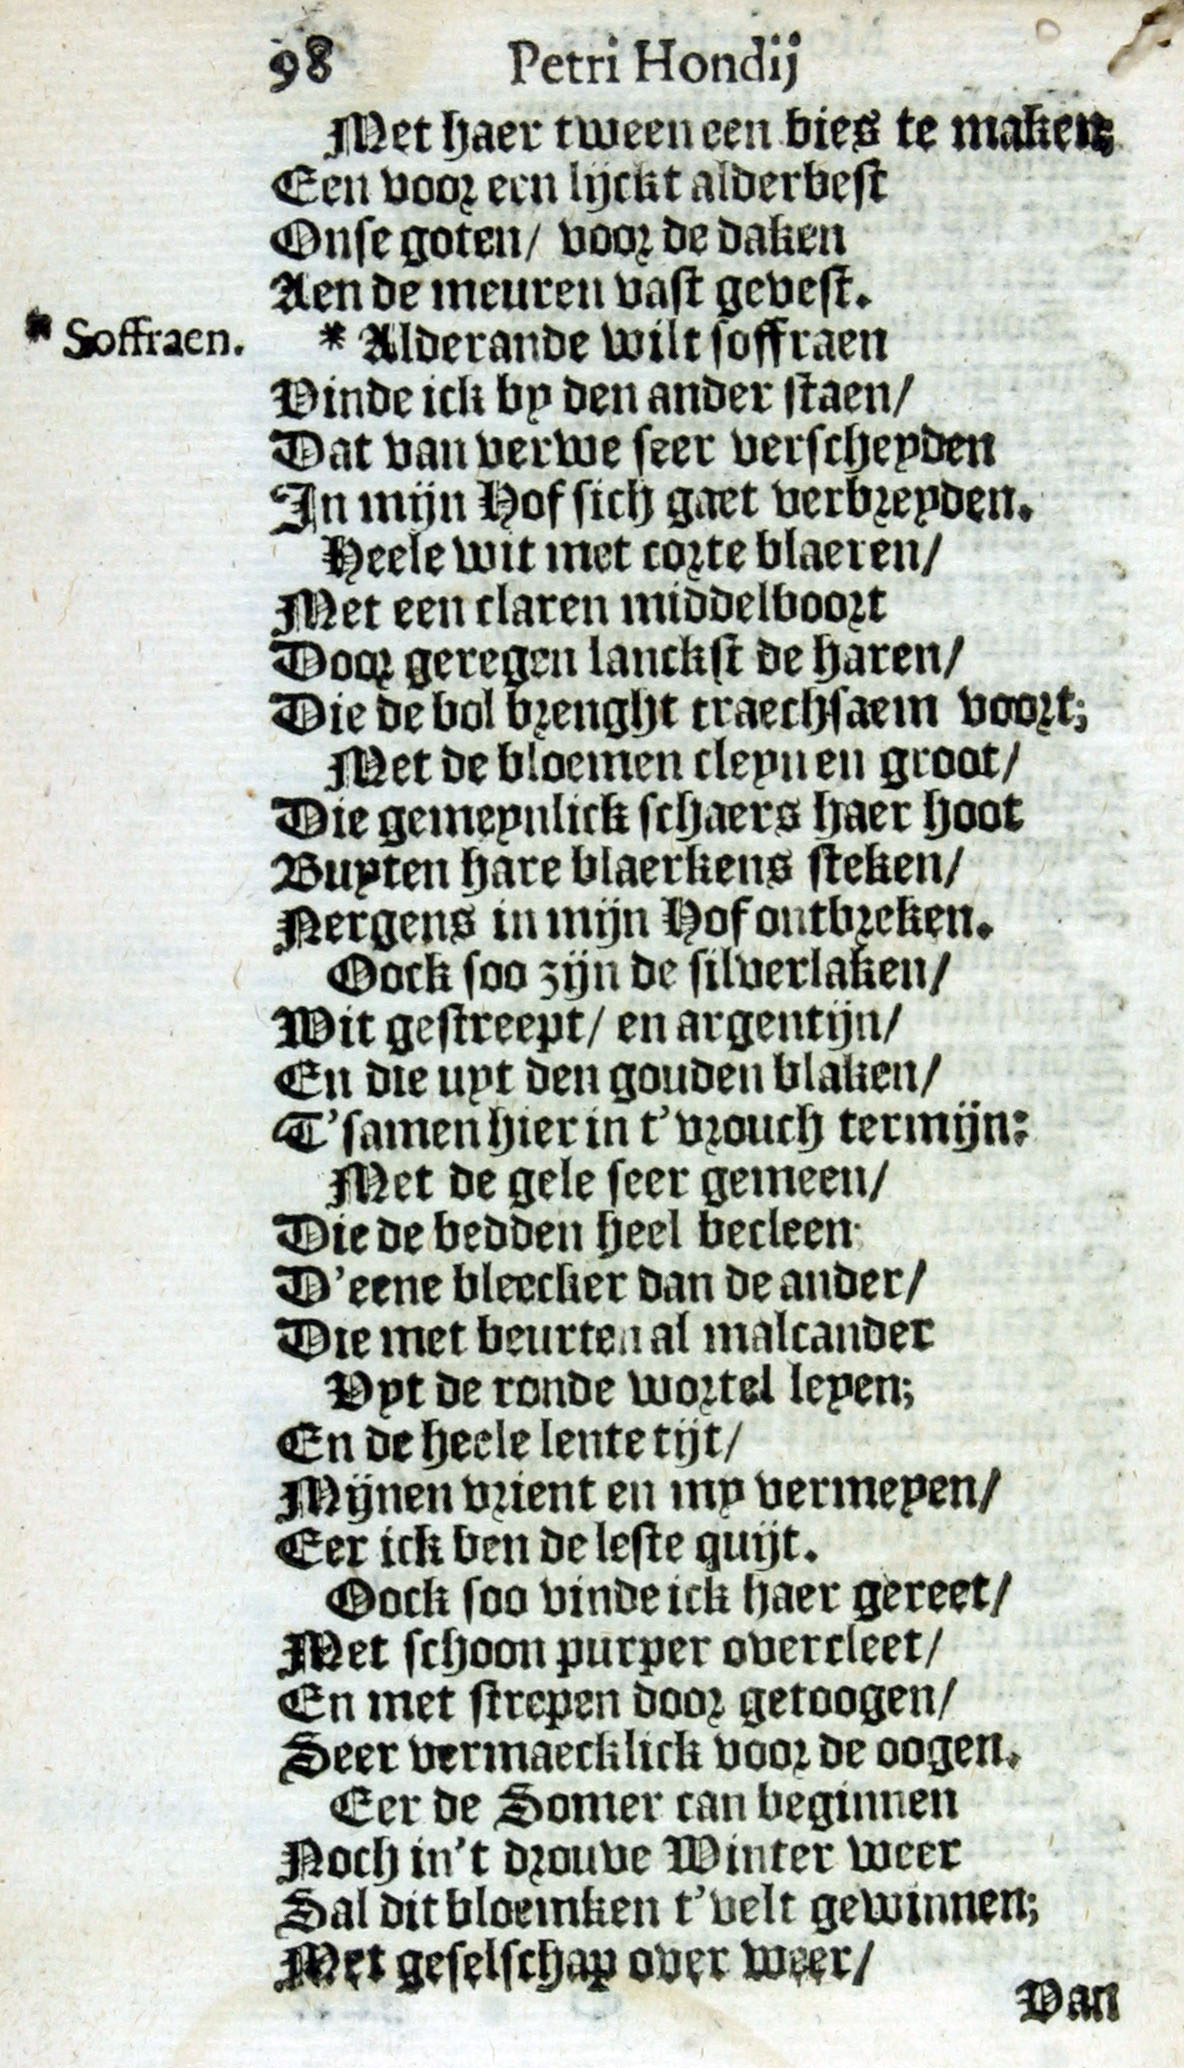 98 Petri Hondij
Met haer tween een bies te maken;
Een voor een lijckt alderbest
Onse goten/ voor de daken
Aen de meuren vast gevest.
* Soffraen. * Alderande wilt soffraen
Vinde ick by den ander staen/
Dat van verwe seer verscheyden
In mijn Hof sich gaet verbreyden.
Heele wit met corte blaeren/
Met een claren middelboort
Door geregen lanckst de haren/
Die de bol brenght traechsaem voort;
Met de bloemen cleyn en groot/
Die gemeynlick schaers haer hoot
Buyten hare blaerkens steken/
Nergens in mijn Hof ontbreken.
Oock soo zijn de silverlaken/
Wit gestreept/ en argentijn/
En die uyt den gouden blaken/
T'samen hier in t'vrouch termijn:
Met de gele seer gemeen/
Die de bedden heel becleen
D'eene bleecker dan de ander/
Die met beurten al malcander
Vyt de ronde wortel leyen;
En de heele lente tijt/
Mijnen vrient en my vermeyen/
Eer ick ben de leste quijt.
Oock soo vinde ick haer gereet/
Met schoon purper overcleet/
En met strepen door getoogen/
Seer vermaecklick voor de oogen.
Eer de Somer can beginnen
Noch in't drouve Winter weer
Sal dit bloemken t'velt gewinnen;
Met geselschap over weer/
Van